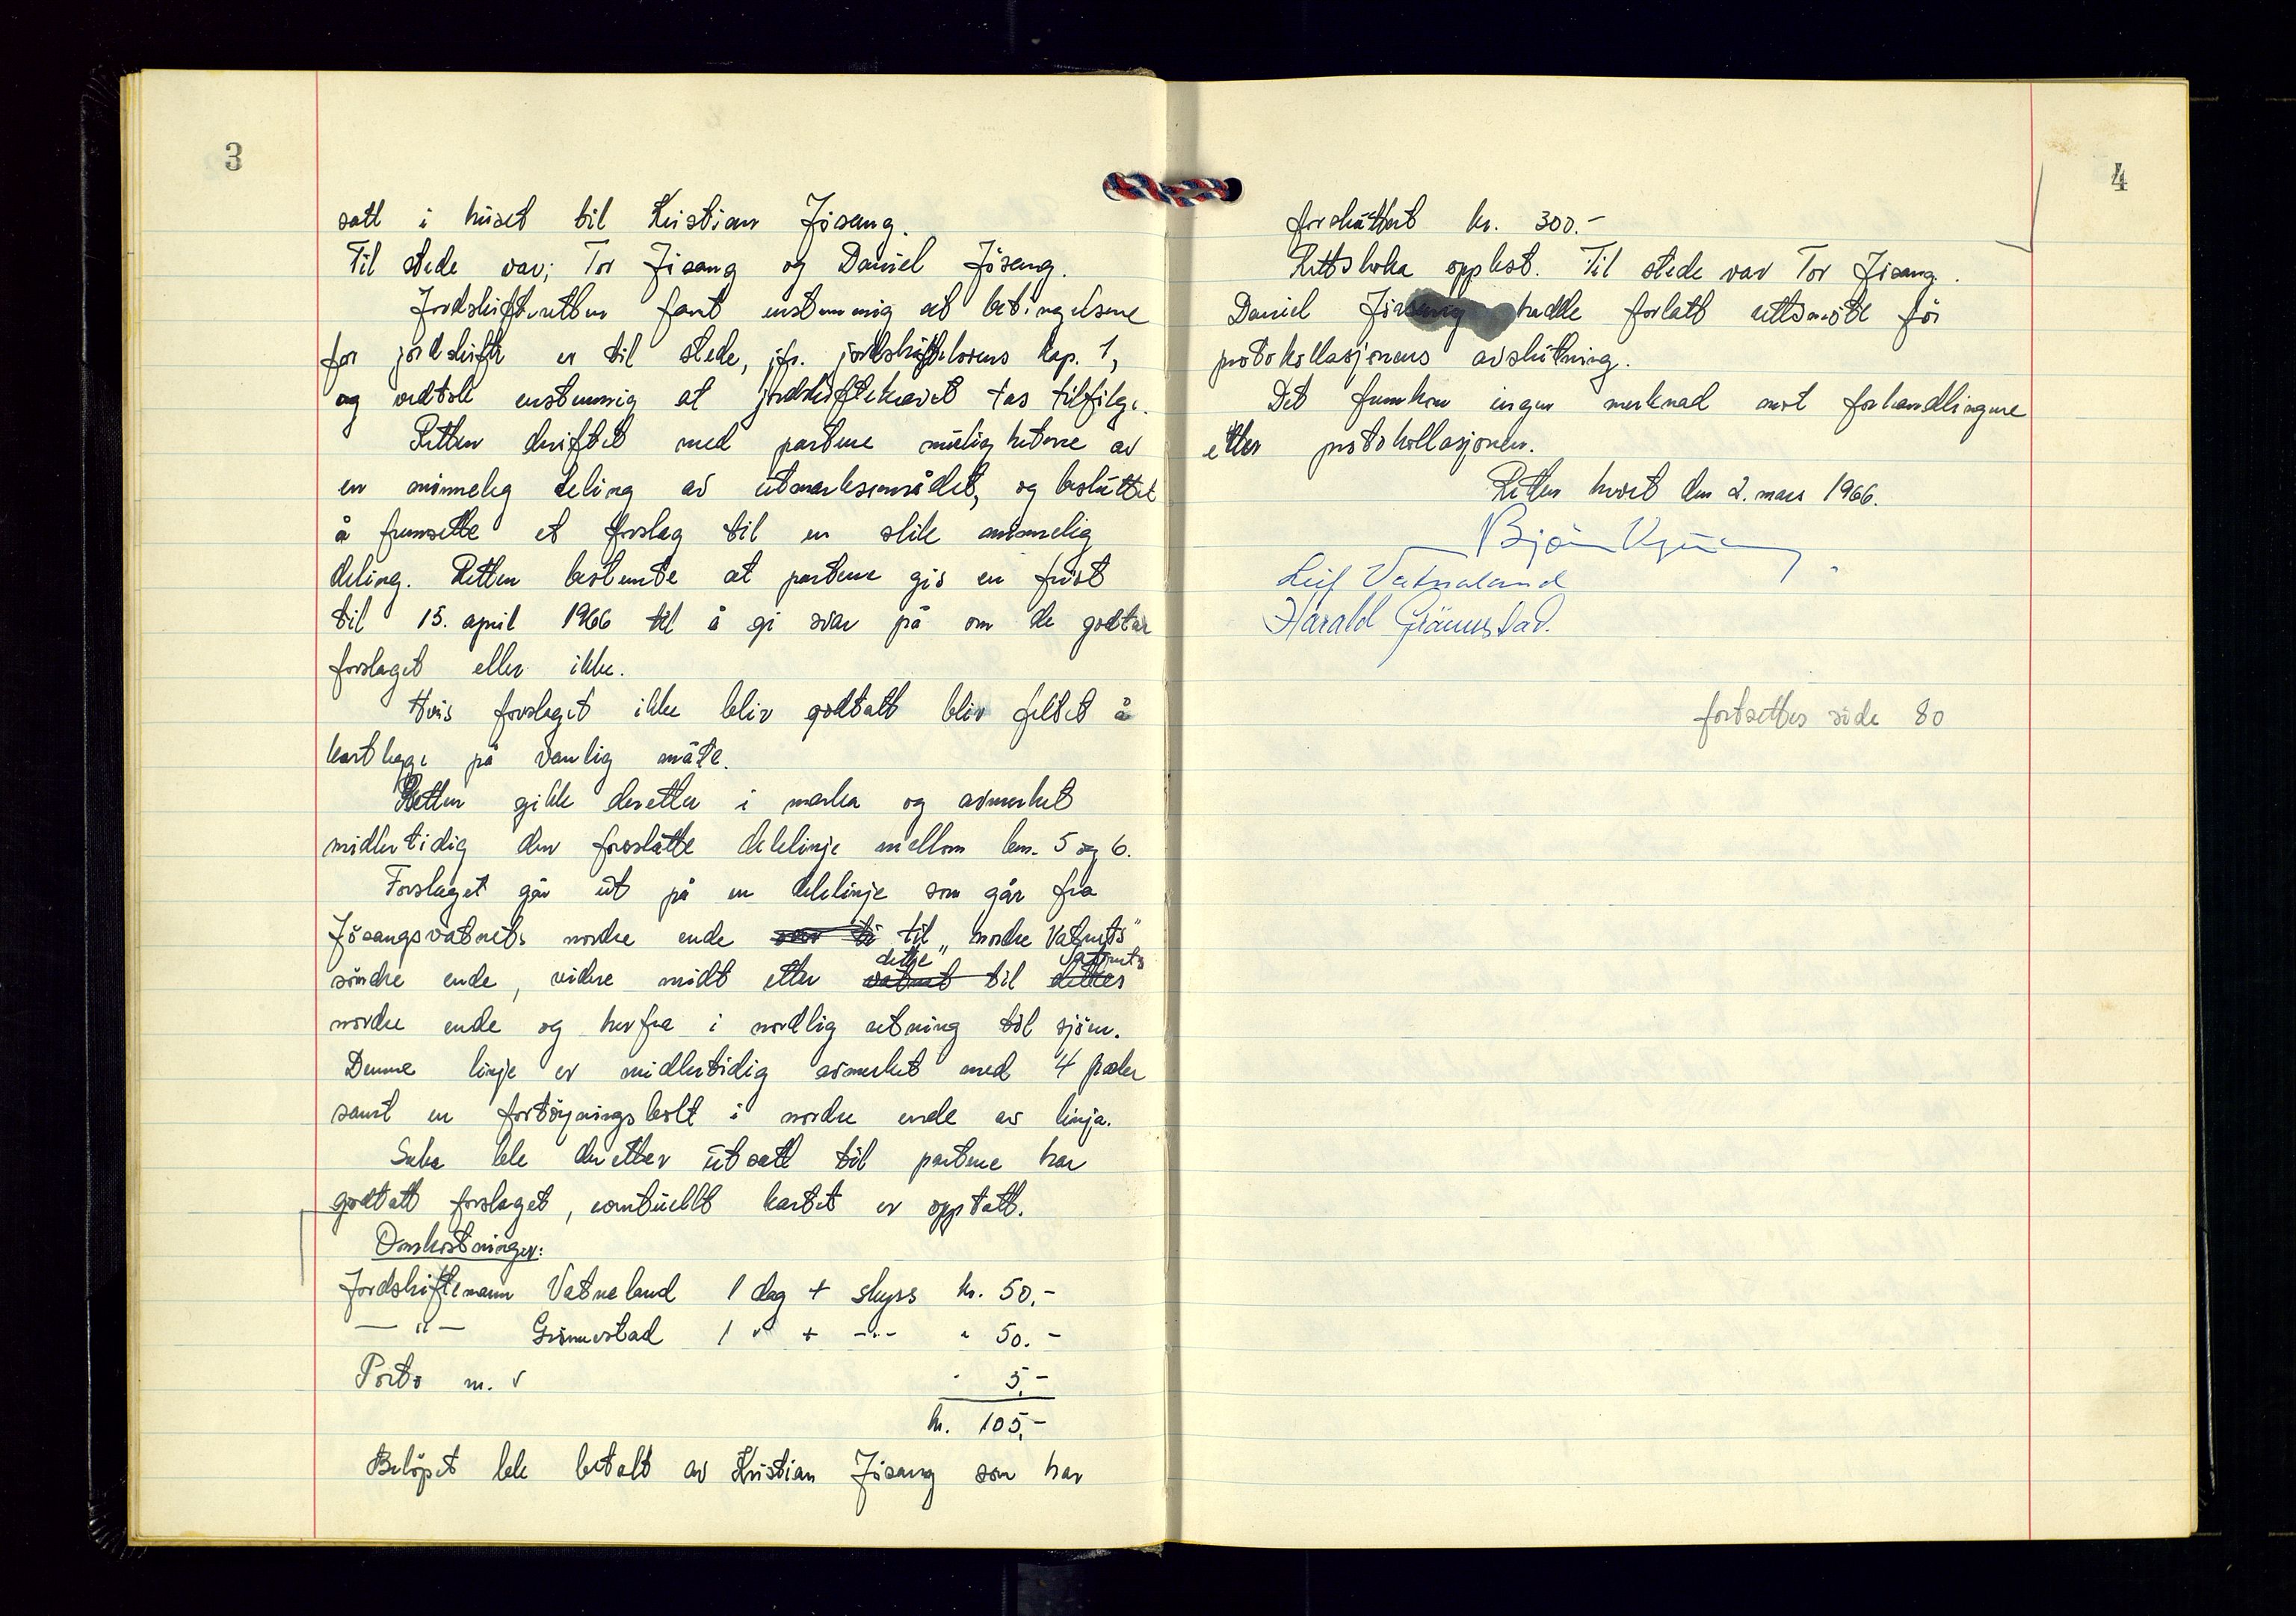 3
satt i huset til Kristian Jösang.
Til stede var; Tor Jösang og Daniel Jösang.
Jordskifteretten fant enstemmig at betingelsene
for jordskifte er til stede, jfr. jordskiftelovens kap. 1,
og vedtok enstemmig at jordskiftekravet tas tilfölge.
Retten dröftet med partene mulighetene av
en minnelig deling av utmarksområdet, og besluttet
å fremsette et forslag til en slik minnelig
deling. Retten bestemte at partene gis en frist
til 15. april 1966 til å gi svar på om de godtar
forslaget eller ikke.
Hvis forslaget ikke blir godtatt blir feltet å
kartlegge på vanlig måte.
Retten gikk deretter i marka og avmerket
midlertidig den foreslåtte delelinje mellom bnr. 5 og 6.
Forslaget går ut på en delelinje som går fra
Jösangsvatnets nordre ende til „nordre Vatnets"
söndre ende, videre midt etter vatnet dette til dettes Vatnets
nordre ende og herfra i nordlig retning til sjöen.
Denne linje er midlertidig avmerket med 4 pæler
samt en fortöyningsbolt i nordre ende av linja.
Saka ble deretter utsatt til partene har
godtatt forslaget, eventuellt kartet er opptatt.
Omkostninger:
Jordskiftemann Vatneland 1 dag + skyss kr. 50,-
— " — Grönnestad 1 " + -"- " 50.-
Porto m. v " 5,-
kr. 105,-
Belöpet ble betalt av Kristian Jösang som har
4
forskuttert kr. 300.-
Rettsboka opplest. Til stede var Tor Jösang.
Daniel Jösang hadde forlatt rettsmöte för
protokollasjonens avslutning.
Det fremkom ingen merknad mot forhandlingene
etter protokollasjonen.
Retten hevet den 2. mars 1966.
Leif Vatnaland
Harald Grönnestad.
fortsettes side 80